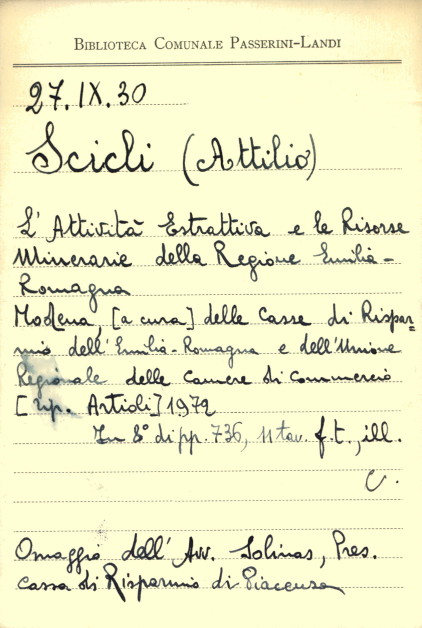 BIBLIOTECA COMUNALE PASSERINI-LANDI
27.IX.30
Scicli (Attilio)
L'Attività Estrattiva e le Risorse
Minerarie della Regione Emilia-
Romagna
Modena, [a cura] delle Casse di Rispar=
mio dell'Emilia-Romagna e dell'Unione
Regionale delle Camere di Commercio
[Tip. Artioli] 1972
In 8° di pp. 736, 11 tav. f.t., ill.
C.
Omaggio dell'Avv. Solinas, Pres.
Cassa di Risparmio di Piacenza